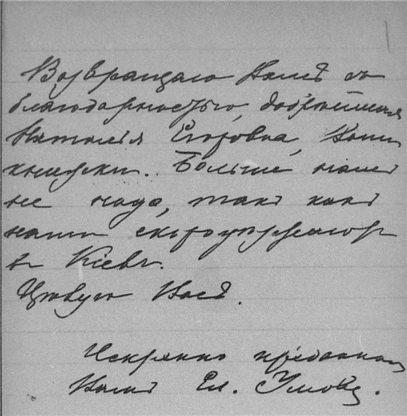 Возвращаю Вамъ съ
благодарностью, добрѣйшая
Наталья Егоровна, Ваши
книжки. Больше намъ
не надо, такъ какъ
наши скоро уѣзжаютъ
въ Кіевъ.
Цѣлую Васъ.
Искренно преданная
Вамъ Ел.